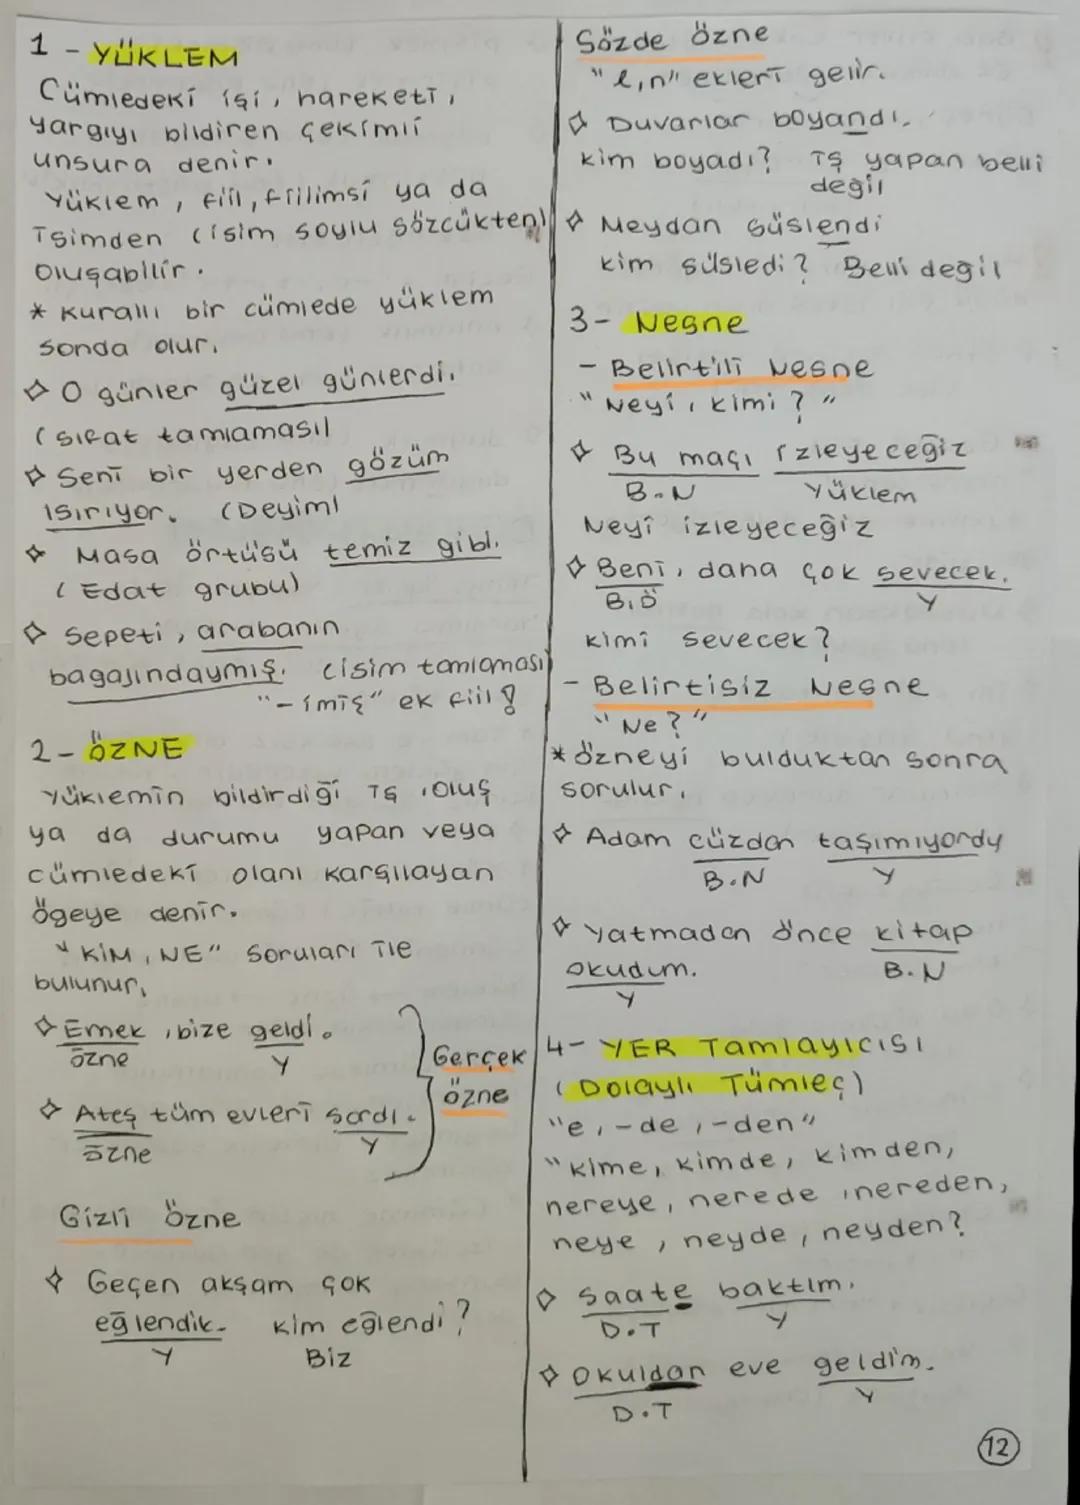 1 - YÜKLEM
Cümledeki işi, hareketi,
yargıyı bildiren çekimli
unsura denir.
Yüklem, fiil, fiilimsi ya da
isimden (isim soylu sözcükten)
oluşabilir.
* Kurallı bir cümlede yüklem
sonda olur.
◇ O günler güzel günlerdi.
(sıfat tamlaması)
◇ Seni bir yerden gözüm
ısırıyor. (Deyim)
◇ Masa örtüsü temiz gibi.
(Edat grubu)
◇ Sepeti, arabanın
bagajındaymış. (isim tamlaması)
"-imiş" ek fiil!
2- ÖZNE
Yüklemin bildirdiği iş, oluş
ya da durumu yapan veya
cümledeki olanı karşılayan
ögeye denir.
"KİM, NE" soruları ile
bulunur.
◇ Emek, bize geldi.
özne Y
◇ Ateş tüm evleri sardı.
özne Y
Gerçek
özne
Gizli özne
◇ Geçen akşam çok
eğlendik. Kim eğlendi?
Y Biz
Sözde özne
"l,n" ekleri gelir.
◇ Duvarlar boyandı.
kim boyadı? iş yapan belli
değil
◇ Meydan süslendi
kim süsledi? Belli değil
3- Nesne
- Belirtili Nesne
"Neyi, kimi?"
◇ Bu maçı izleyeceğiz
B.N Yüklem
Neyi izleyeceğiz
◇ Beni, daha çok sevecek.
B.Ö Y
kimi sevecek?
- Belirtisiz Nesne
"Ne?"
* özneyi bulduktan sonra
sorulur.
◇ Adam cüzdan taşımıyordu
B.N Y
◇ Yatmadan önce kitap
okudum. B.N
Y
4- YER Tamlayıcısı
(Dolaylı Tümleç)
"e, -de, -den"
"kime, kimde, kimden,
nereye, nerede, nereden,
neye, neyde, neyden?
◇ Saate baktım.
D.T Y
◇ Okuldan eve geldim.
D.T Y
12